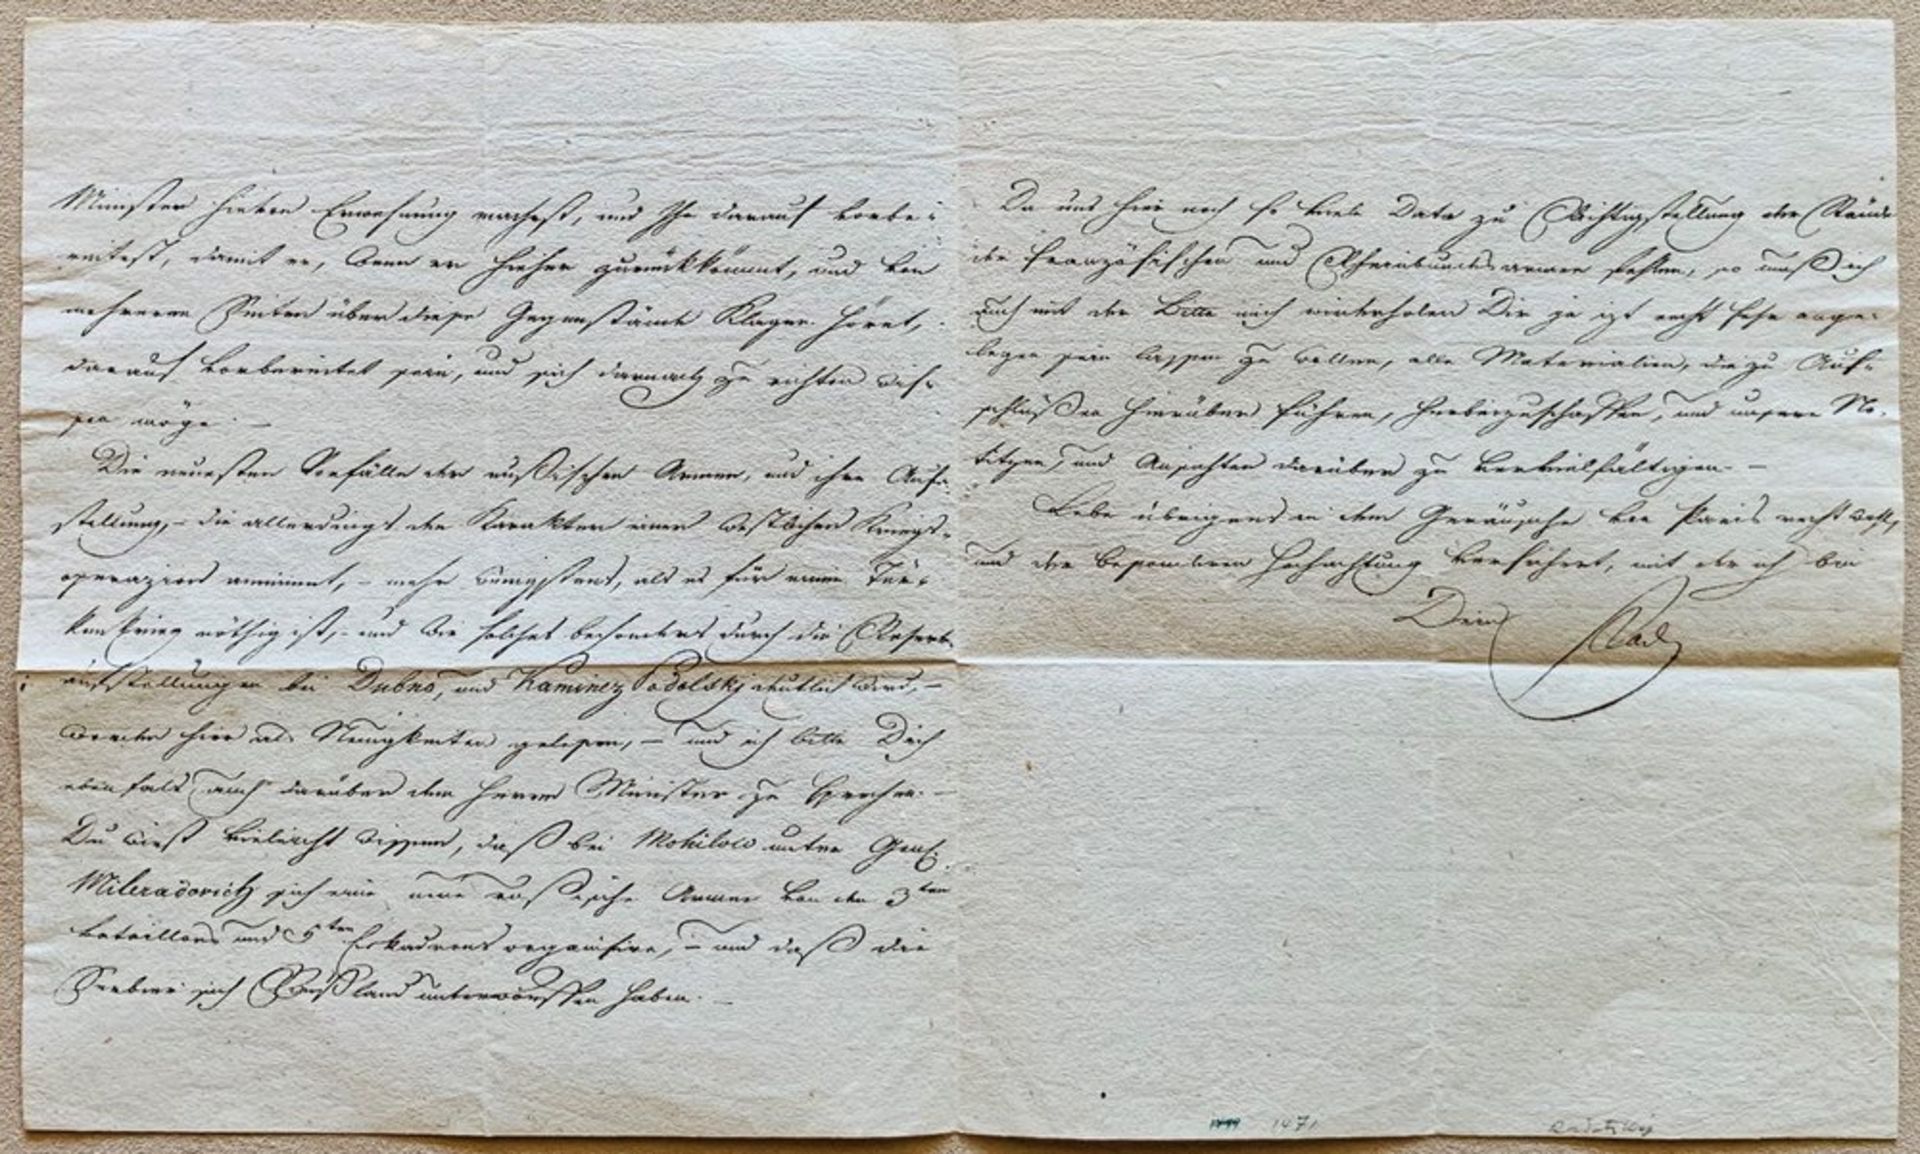 Minister hievon Erwehnung machest, und Ihn darauf vorbe-
reitest, damit er, wenn er hieher zurückkömmt, und von
mehreren Seiten über diese Gegenstände Klagen höret,
darauf vorbereitet sein, und sich darnach zu richten wis-
sen möge. —
Die neuesten Vorfälle der rußischen Armee, und ihre Auf-
stellung, – die allerdings den Karakter einer westlichen Kriegs-
operazion annimmt, – mehr wenigstens, als es für einen Tür-
kenkrieg nöthig ist, – und wie solches besonders durch die Reserv-
aufstellungen bei Dubno, und Kaminez Podolskj deutlich wird, –
werden hier als Neuigkeiten gelesen, – und ich bitte Dich
ebenfals auch darüber dem Herrn Minister zu sprechen. –
Du wirst vieleicht wissen, daß bei Mohilow unter Genl.
Miloradovich sich eine neue rußische Armee von den 3ten
Bataillons und 5ten Eskadrons organisire, – und daß die
Servier sich Rußland unterworffen haben. —
Da uns hier noch so viele Data zu Richtigstellung der Stände
der französischen und Rheinbunds armee fehlen, so muß ich
auch mit der Bitte mich wiederholen Dir ja izt recht sehr ange-
legen sein lassen zu wollen, alle Materialien, die zu Auf-
schlüßen hierüber führen, herbeizuschaffen, und unsere No-
titzen, und Ansichten darüber zu vervielfältigen. —
Lebe übrigens in dem Geräusche von Paris recht wohl,
und der besonderen Hochachtung versichert, mit der ich bin
Dein Rad
1471
Radetzky